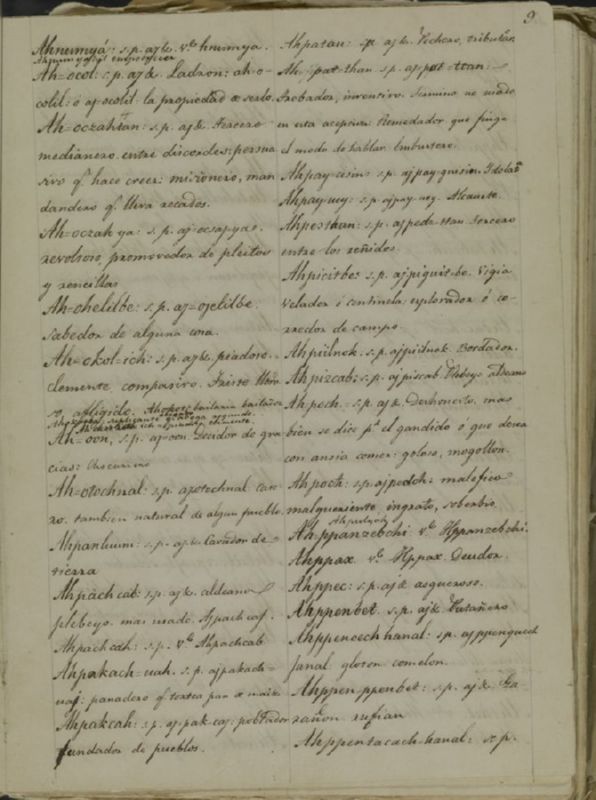 9
Ahnumyá: s.p. aj&. vᵉ hnumya.
Ah=ocol: s.p. aj&. Ladron: ah-o-
colil: ò aj-ocolil la propiedad de serlo.
Ah=oczahtan: s.p. aj&. Tercero
medianero entre discordes: persua
sivo q.e hace creer: misionero, man
dandero q.e lleva recados.
Ah=oczah ya: s.p. aj-ocsaj-ya:
revoltoso, promovedor de pleitos
y rencillas
Ah=ohelilbe: s.p. aj=ojelilbe.
sabedor de alguna cosa.
Ah=okol-ich: s.p. aj&. piadoso
clemente compasivo. Triste lloro
so, afligido. Ahokot bailarin bailador
Ah=oon, s.p. aj-oon. Decidor de gra
cias:
Ah=otochnal: s.p. ajotochnal case
ro. tambien natural de algun pueblo.
Ahpanluum: s.p. aj&. Cavador de
tierra
Ahpach cat: s.p. aj&. aldeano
plebeyo. mas usado. Ajpach caj.
Ahpachcah: s.p. vᵉ Ahpachcab
Ahpakach=uah. s.p. ajpakach-
uaj: panadero q.e tortea pan de maiz
Ahpakcah: s.p. aj-pak-caj: poblador
fundador de pueblos.
Ahpatan: s.p. aj&. Pechero, tributar.
Ah-pat-than s.p. aj-pat-ttan:
Trobador, inventivo. Termino no usado
en esta acepcion: Remedador que finge
el modo de hablar. Embustero.
Ahpay-cisin: s.p. ajpay-quisin. Idolatra
Ahpay-uey: s.p. ajpay-uey. Alcauete.
Ahpesthan: s.p. ajpeda-ttan. Tercero
entre los reñidos.
Ahpicitbe: s.p. ajpiquit-be. Vigia
velador ó centinela explorador ó co-
rredor de campo
Ahpiilnok. s.p. ajpiilnok. Bordador.
Ahpizcab: s.p. ajpiscab. Plebeyo aldeano
Ahpoch. s.p. aj&. Deshonesto. mas
bien se dice p.r el gandido ó que desea
con ansia comer: goloso, mogollon.
Ahpoch: s.p. ajpoch: malefico
malqueriente, ingrato, soberbio
Ahppanzebchi vᵉ Hppanzebchi.
Ahppax vᵉ Hppax. Deudor.
Ahppec: s.p. aj& asqueroso.
Ahppenbet. s.p. aj& Putañero
Ahppencech hanal: s.p. ajppenquech
janal gloton comelon.
Ahppen-ppenbet: s.p. aj& Ga-
rañon rufian
Ahppentacach-hanal: s.p.